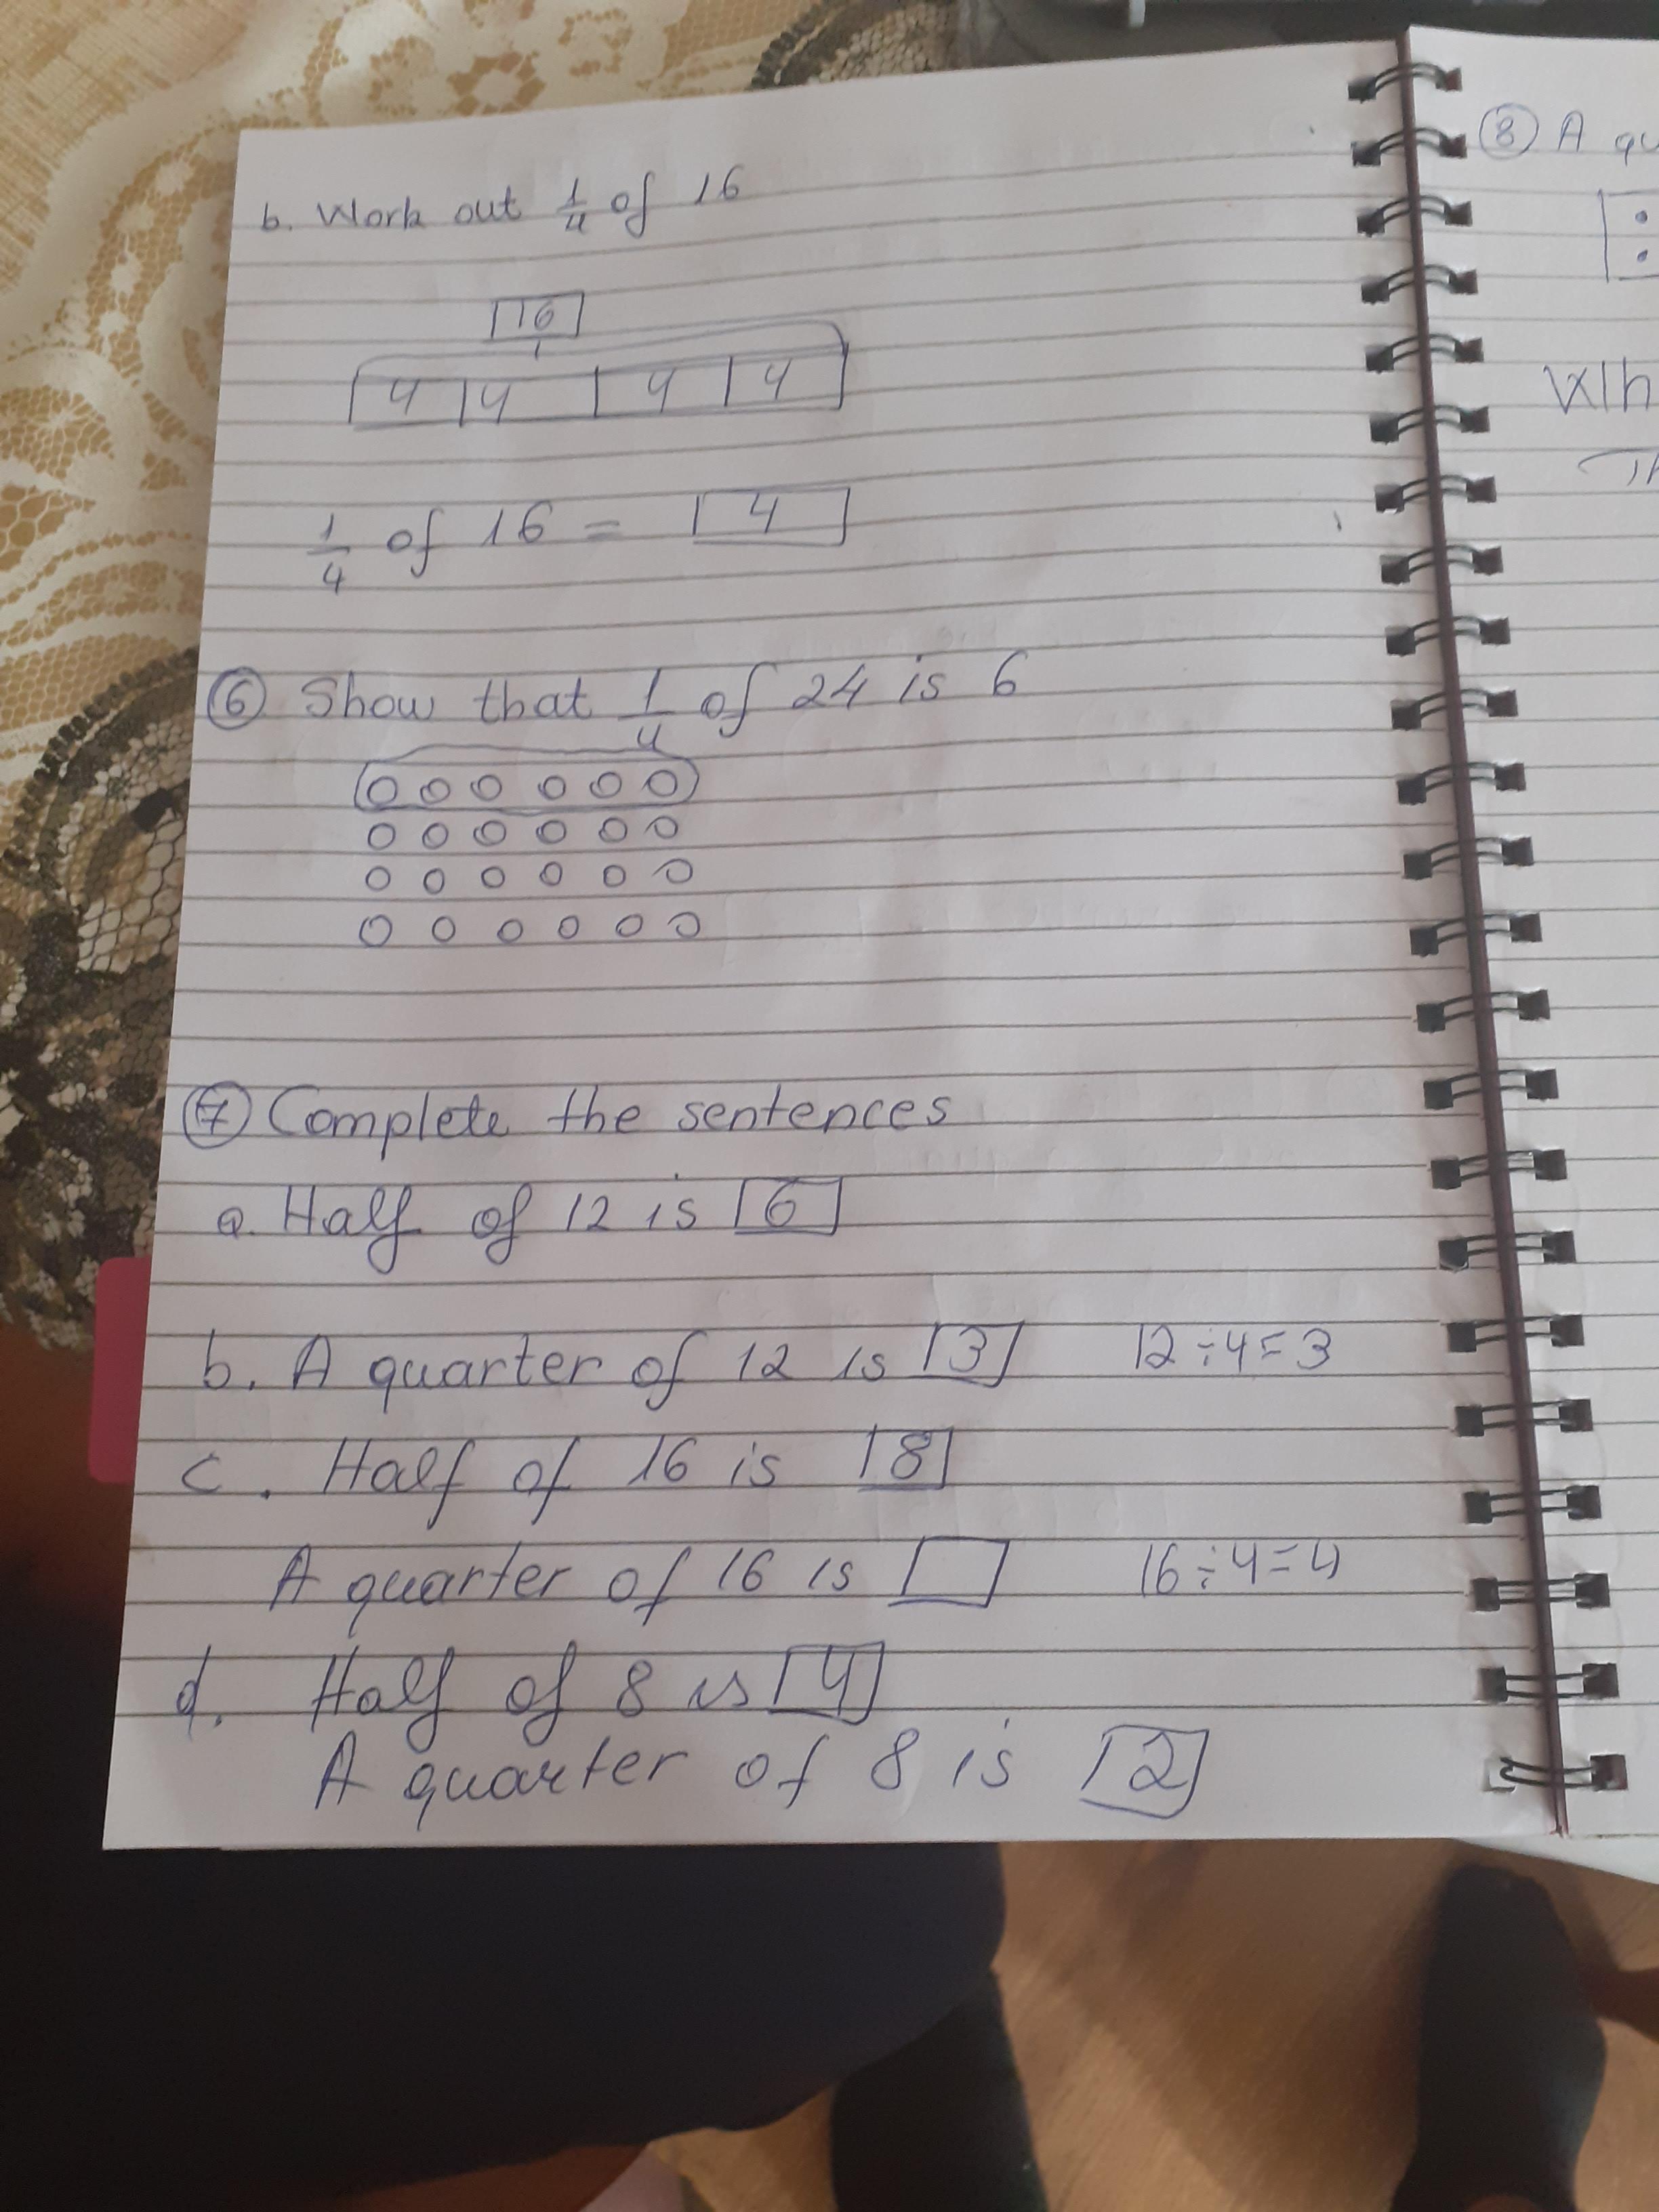 b. Work out 1/4 of 16
16
4 4 4 4
1/4 of 16 = 4
6 Show that 1/4 of 24 is 6
7 Complete the sentences
a. Half of 12 is 6
b. A quarter of 12 is 3 12÷4=3
c. Half of 16 is 8
A quarter of 16 is 16÷4=4
d. Half of 8 is 4
A quarter of 8 is 2
8 A qu
Wh
Th